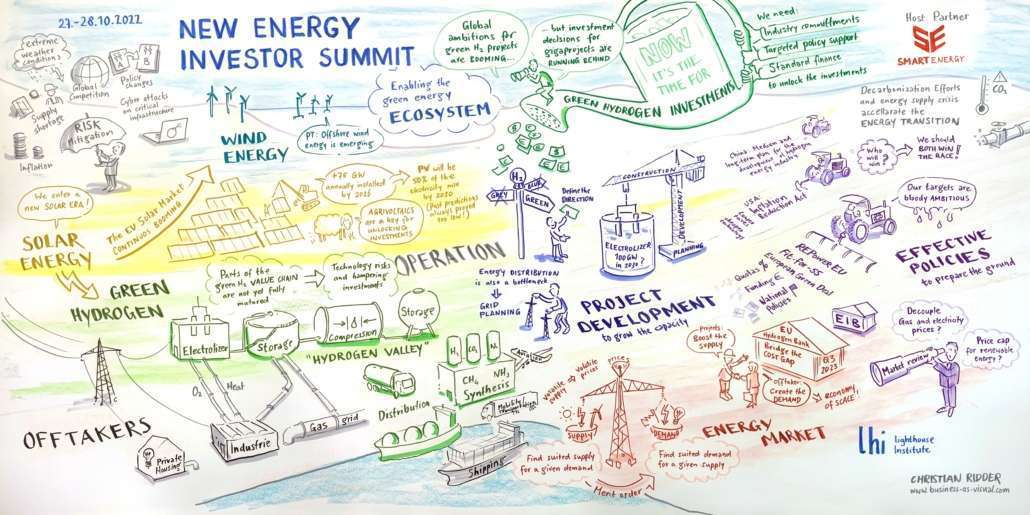 27.-28.10.2022
NEW ENERGY
INVESTOR SUMMIT
Global
ambitions for
green H₂ projects
are BOOMING...
... but investment
decisions for
gigaprojects are
RUNNING BEHIND
NOW
IT'S THE
TIME FOR
GREEN HYDROGEN INVESTMENTS
We need:
Industry commitments
Targeted policy support
Standard finance
to unlock the investments
Host Partner
SE
SMARTENERGY
extreme
weather
conditions?
Global
Competition
Policy
changes
Supply
shortage
Cyber attacks
on critical
infrastructure
RISK
Mitigation
Inflation
WIND
ENERGY
PT: Offshore wind
energy is emerging
Enabling the
green energy
ECOSYSTEM
Decarbonisation Efforts
and energy supply crisis
accellarate the
ENERGY TRANSITION
CO₂
We enter a
new SOLAR ERA!
SOLAR
ENERGY
The EU Solar Market
CONTINUOS BOOMING
+78 GW
annually installed
by 2026
PV will be
50% of the
electricity mix
by 2050
(Past predictions
always proved
too low!)
AGRIVOLTAICS
are a key for
UNLOCKING
INVESTMENTS
H₂
GREY
BLUE
GREEN
Define the
DIRECTION
CONSTRUCTION
DEVELOPMENT
PLANNING
ELECTROLIZER
100GW
in 2030?
China: Medium and
long-term plan for the
development of hydrogen
energy industry
USA
Inflation
Reduction Act
Who
will
win?
We should
BOTH WIN
THE RACE!
Our targets are
bloody AMBITIOUS
EU
REPOWER EU
Fit-for-55
European Green Deal
Quotas %
Funding €
National
Policies
EFFECTIVE
POLICIES
to prepare the ground
GREEN
HYDROGEN
Parts of the
green H₂ VALUE CHAIN
are not yet fully
matured
Technology risks
and hampering
investments
OPERATION
Energy DISTRIBUTION
is also a bottleneck
GRID
PLANNING
PROJECT
DEVELOPMENT
to grow the capacity
Electrolizer
Storage
Compression
Storage
"HYDROGEN VALLEY"
H₂
CO₂
N₂
CH₄
NH₃
Synthesis
Aviation
Mobility
Distribution
Shipping
O₂
Heat
Industrie
Gas grid
OFFTAKERS
Private
Housing
Volatile
supply
Volatile
prices
price
SUPPLY
DEMAND
Find suited supply
for a given demand
Find suited demand
for a given supply
Merit order
ENERGY
MARKET
Projects:
Boost the
supply
EU
Hydrogen Bank
Bridge the
COST GAP
Q3
2023
Offtaker:
Create the
DEMAND
ECONOMY
of SCALE
EIB
Decouple
Gas and electricity
prices?
Price cap
for renewable
energy?
Market review
lhi
lighthouse
Institute
CHRISTIAN RIDDER
www.business-as-visual.com